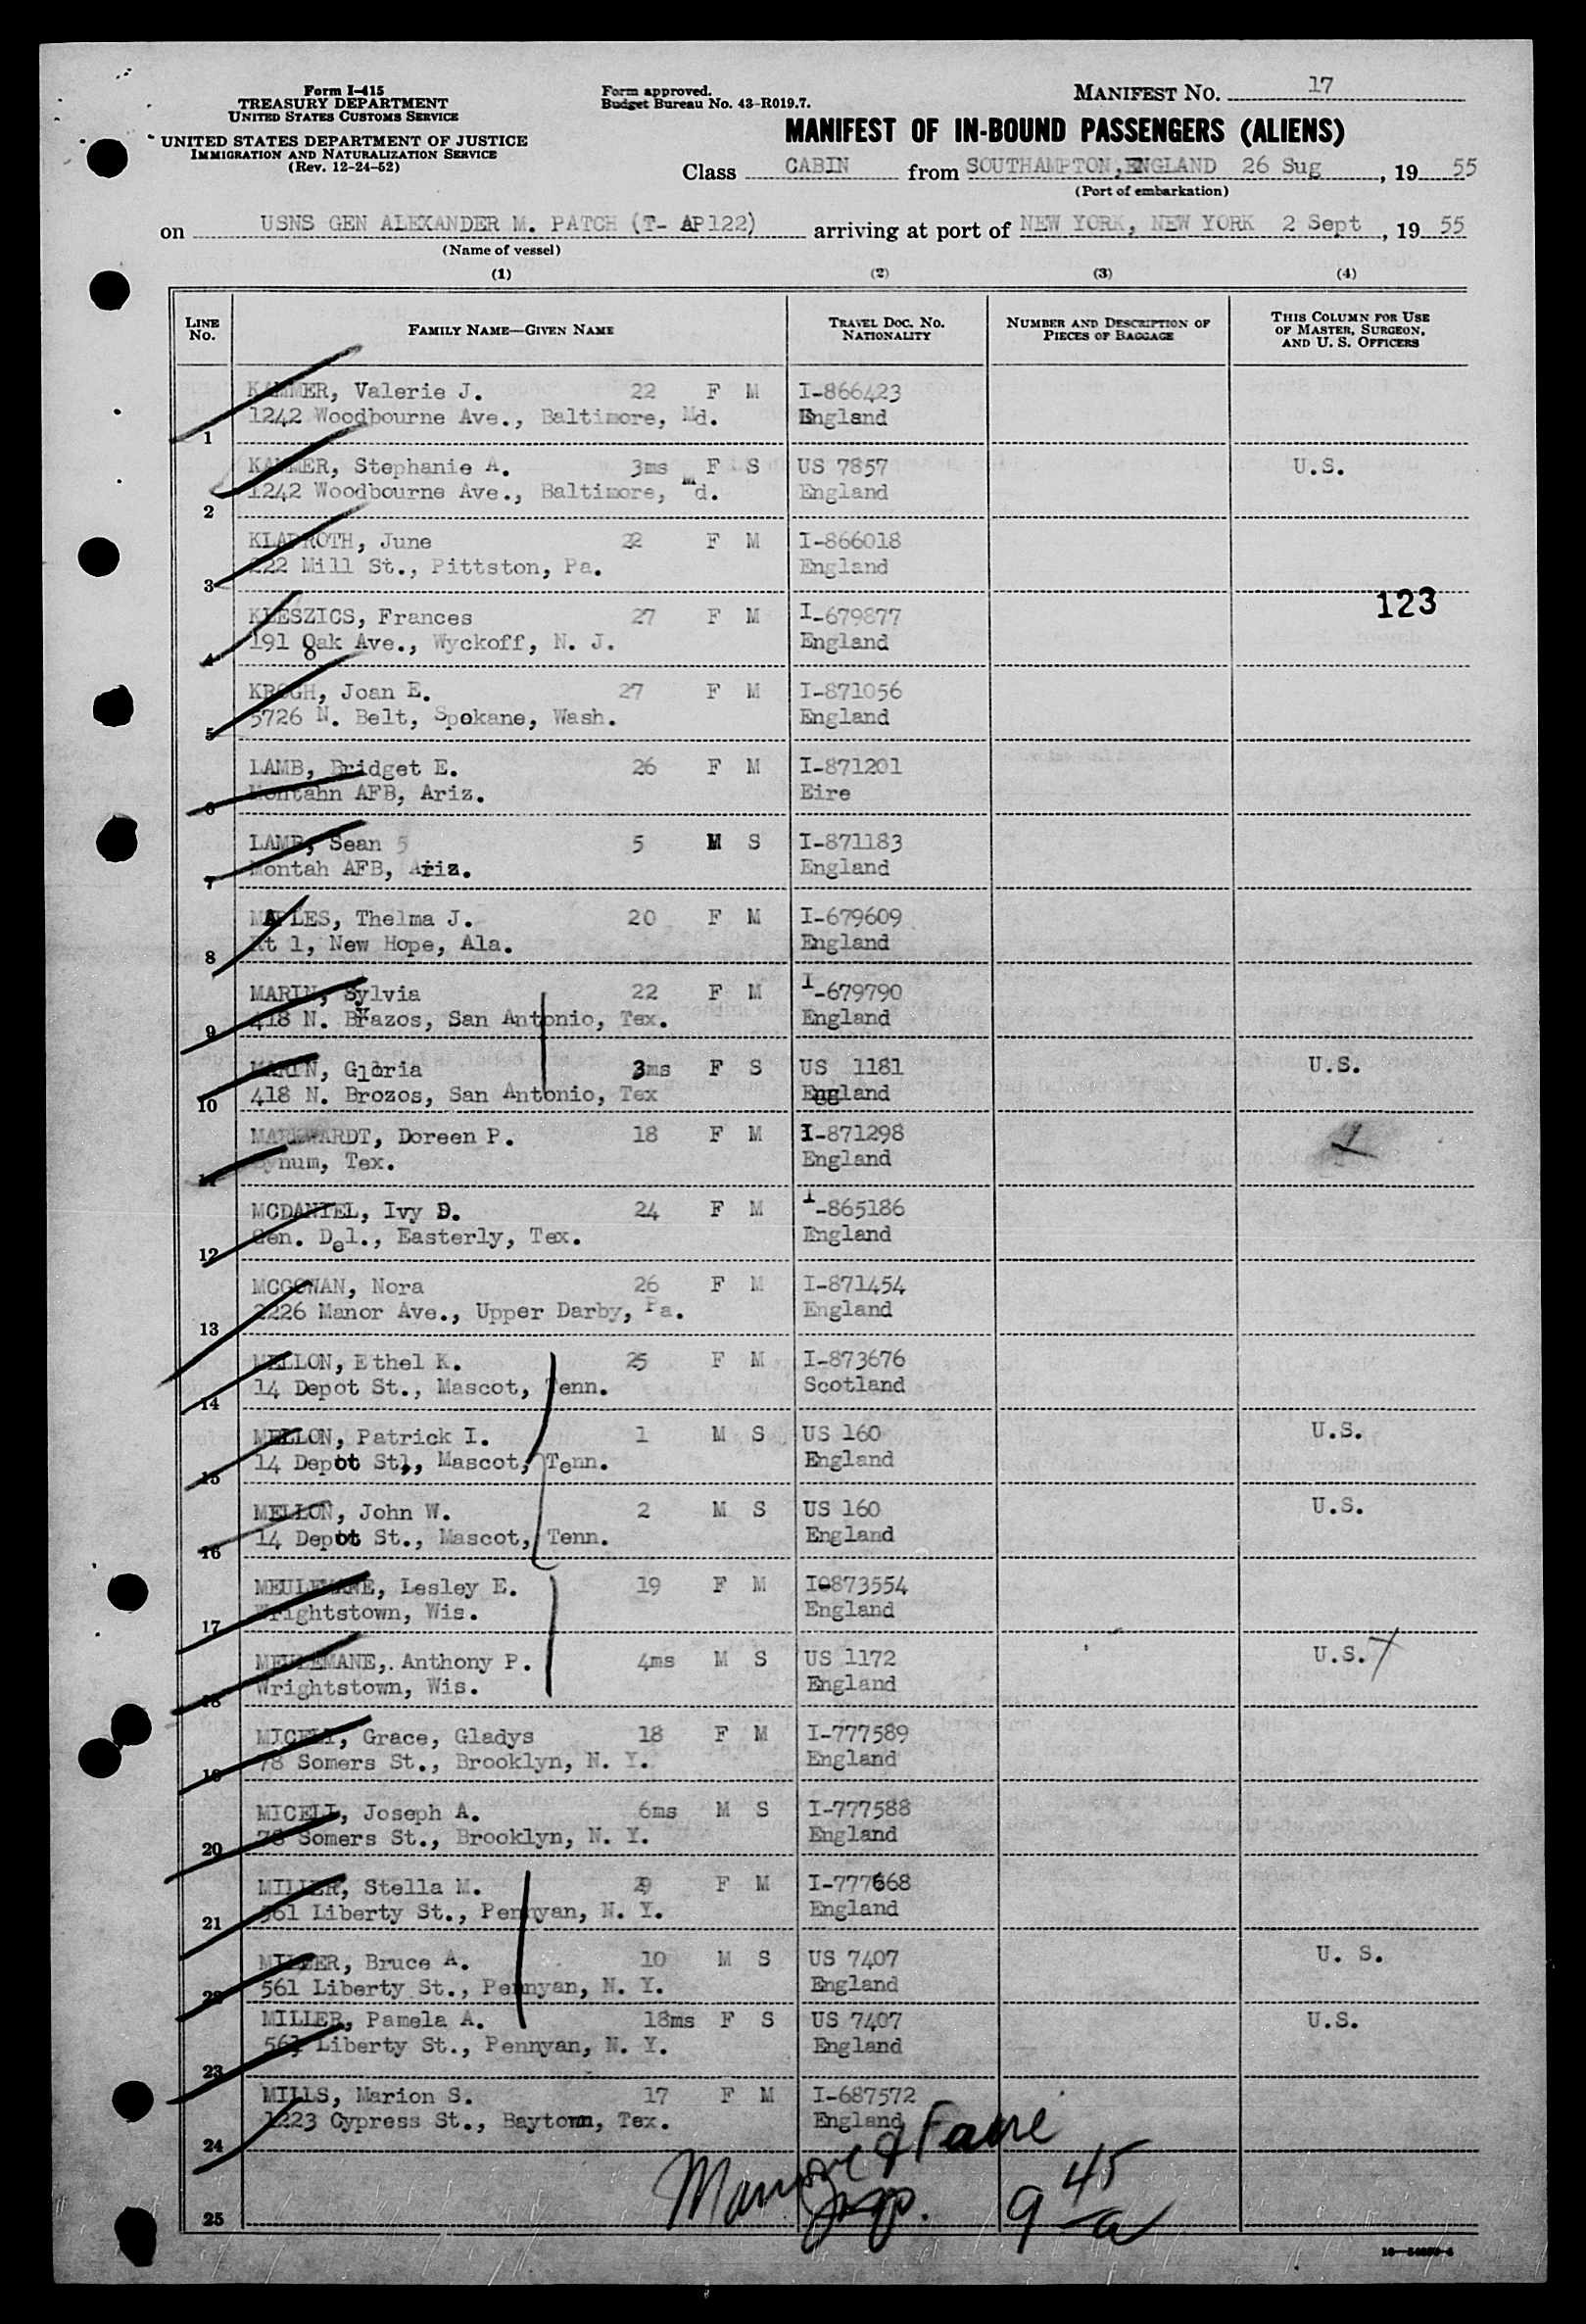 Form I-415
TREASURY DEPARTMENT
UNITED STATES CUSTOMS SERVICE
UNITED STATES DEPARTMENT OF JUSTICE
IMMIGRATION AND NATURALIZATION SERVICE
(Rev. 12-24-52)
Form approved.
Budget Bureau No. 43-R019.7.
MANIFEST NO. 17
MANIFEST OF IN-BOUND PASSENGERS (ALIENS)
Class CABIN from SOUTHAMPTON, ENGLAND 26 Sug, 19 55
(Port of embarkation)
on USNS GEN ALEXANDER M. PATCH (T- AP122) arriving at port of NEW YORK, NEW YORK 2 Sept, 19 55
(Name of vessel)
(1) (2) (3) (4)
LINE NO. FAMILY NAME—GIVEN NAME TRAVEL DOC. NO. NATIONALITY NUMBER AND DESCRIPTION OF PIECES OF BAGGAGE THIS COLUMN FOR USE OF MASTER, SURGEON, AND U. S. OFFICERS
KAMMER, Valerie J. 22 F M I-866423
1 1242 Woodbourne Ave., Baltimore, Md. England
KAMMER, Stephanie A. 3ms F S US 7857 U.S.
2 1242 Woodbourne Ave., Baltimore, Md. England
KLADROTH, June 22 F M I-866018
3 222 Mill St., Pittston, Pa. England
123
KLESZICS, Frances 27 F M I-679877
4 191 Oak Ave., Wyckoff, N. J. England
KROGH, Joan E. 27 F M I-871056
5 5726 N. Belt, Spokane, Wash. England
LAMB, Bridget E. 26 F M I-871201
6 Montahn AFB, Ariz. Eire
LAMB, Sean 5 5 M S I-871183
7 Montah AFB, Ariz. England
MAPLES, Thelma J. 20 F M I-679609
8 Rt 1, New Hope, Ala. England
MARIN, Sylvia 22 F M I-679790
9 418 N. Brazos, San Antonio, Tex. England
MARIN, Gloria 3ms F S US 1181 U.S.
10 418 N. Brozos, San Antonio, Tex England
MARKWARDT, Doreen P. 18 F M I-871298
11 Bynum, Tex. England
MCDANIEL, Ivy D. 24 F M I-865186
12 Gen. Del., Easterly, Tex. England
MCGOWAN, Nora 26 F M I-871454
13 2226 Manor Ave., Upper Darby, Pa. England
MELLON, Ethel K. 25 F M I-873676
14 14 Depot St., Mascot, Tenn. Scotland
MELLON, Patrick I. 1 M S US 160 U.S.
15 14 Depot St., Mascot, Tenn. England
MELLON, John W. 2 M S US 160 U.S.
16 14 Depot St., Mascot, Tenn. England
MEULEMANE, Lesley E. 19 F M I0873554
17 Wrightstown, Wis. England
MEULEMANE,. Anthony P. 4ms M S US 1172 U.S.
18 Wrightstown, Wis. England
MICELI, Grace, Gladys 18 F M I-777589
19 78 Somers St., Brooklyn, N. Y. England
MICELI, Joseph A. 6ms M S I-777588
20 78 Somers St., Brooklyn, N. Y. England
MILLER, Stella M. 29 F M I-777668
21 561 Liberty St., Pennyan, N. Y. England
MILLER, Bruce A. 10 M S US 7407 U. S.
22 561 Liberty St., Pennyan, N. Y. England
MILLER, Pamela A. 18ms F S US 7407 U.S.
23 561 Liberty St., Pennyan, N. Y. England
MILLS, Marion S. 17 F M I-687572
24 1223 Cypress St., Baytown, Tex. England
25
9 45 a